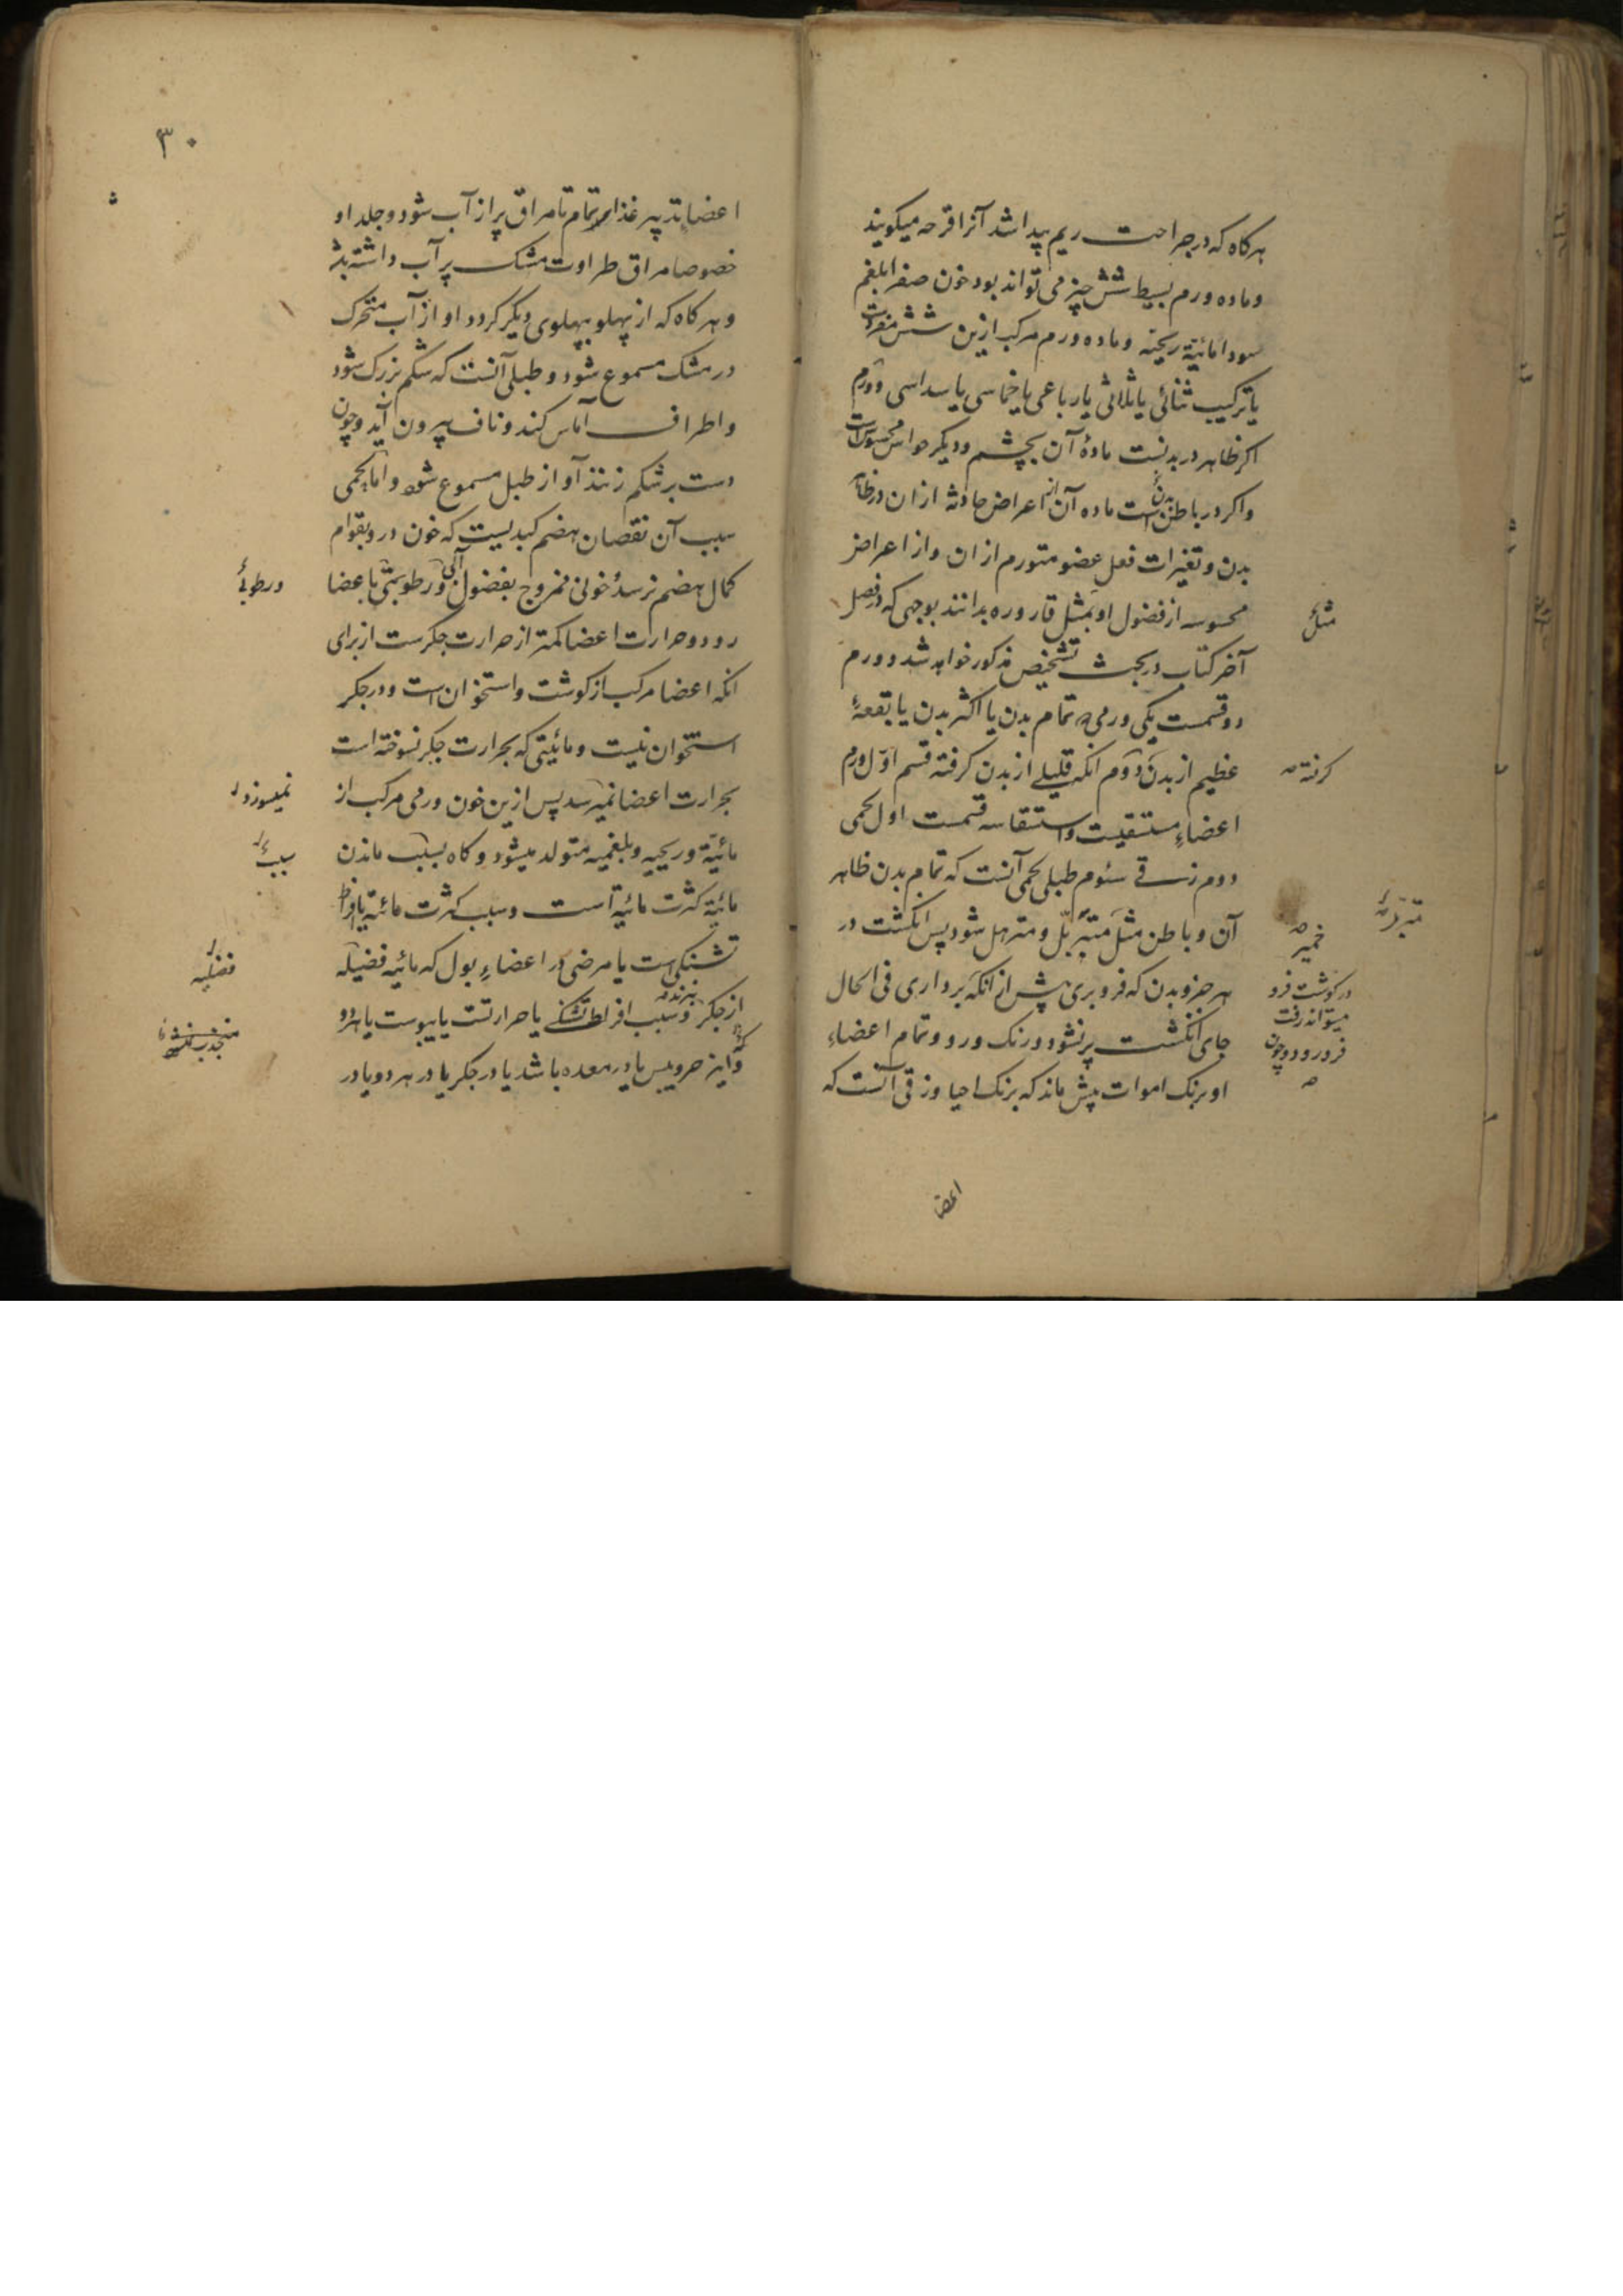 هرکاه که در جراحت ریم پیدا شد آنرا قرحه میکویند
و ماده ورم بسیط شش چیز می تواند بود خون صفرا بلغم
سودا مائیة ریحیه و ماده ورم مرکب ازین شش مفردات
یا ترکیب ثنائی یا ثلاثی یا رباعی یا خماسی یا سداسی و ورم
اکر ظاهر در بدنست مادۀ آن بچشم و دیکر حواس محسوس است
و اکر در باطن بدن است ماده آن از اعراض حادثه ازان در ظاهر
بدن و تغیرات فعل عضو متورم ازان و از اعراض
محسوسه از فضول او بمثل قاروره بدانند بوجهی که در فصل
مثل
آخر کتاب در بحث تشخیص مذکور خواهد شد و ورم
دو قسمست یکی ورمی که تمام بدن یا اکثر بدن یا بقعۀ
عظیم از بدن دوم انکه قلیلی از بدن کرفته قسم اول ورم
کرفته
اعضاء مستسقیست و استسقا سه قسمست اول لحمی
دوم زقی سئوم طبلی لحمی آنست که تمام بدن ظاهر
آن و باطن مثل متربل و مترهل شود پس انکشت در
خمیر
متربل
هر جزو بدن که فرو بری پیش از انکه برداری فی الحال
در کوشت فرو
میتواند رفت
فرو رود و چون
جای انکشت پر نشود و رنک و رو و تمام اعضاء
او برنک اموات پیش ماند که برنک احیا و زقی آنست که
اعضا
۳۰
اعضا بتدبیر غذا تمام تا مراق پر از آب شود و جلد او
خصوصا مراق طراوت مشک پر آب داشته باشد
و هرکاه که از پهلو بپهلوی دیکر کردد او از آب متحرک
در مشک مسموع شود و طبلی آنست که شکم بزرک شود
و اطراف آماس کند و ناف بیرون آید و چون
دست بر شکم زنند آواز طبل مسموع شود و اما لحمی
سبب آن نقصان هضم کبدیست که خون درو بقوام
کمال هضم نرسد خونی ممزوج بفضول آبی و رطوبتی باعضا
و رطوبی
رود و حرارت اعضا کمتر از حرارت جکرست از برای
انکه اعضا مرکب از کوشت و استخوان است و در جکر
استخوان نیست و مائیتی که بحرارت جکر نسوخته است
بحرارت اعضا نمیرسد پس ازین خون ورمی مرکب از
نمیسوزد
مائیة و ریحیه و بلغمیه متولد میشود و کاه بسبب ماندن
سبب
مائیة کثرت مائیة است و سبب کثرت مائیة یا افراط
تشنکی است یا مرضی در اعضاء بول که مائیه فضیله
فضلیه
از جکر نبرند و سبب افراط تشنکی یا حرارتست یا یبوست یا هردو
منجذب نشود
و این حر و یبس یا در معده باشد یا در جکر یا در هر دو یا در